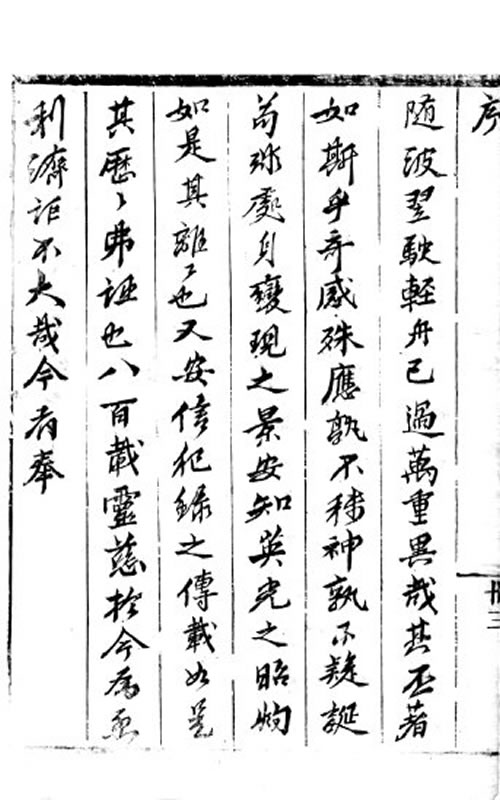 序
随波翌駛輕舟已過萬重異哉其丕著
如斯乎奇感殊應孰不稱神孰不疑誕
苟殊處身變現之景安知英光之昭炯
如是其離〻也又安信犯錄之傳載如是
其歷〻弗誣也八百載靈慈於今爲盛
利濟詎不大哉今者奉
三